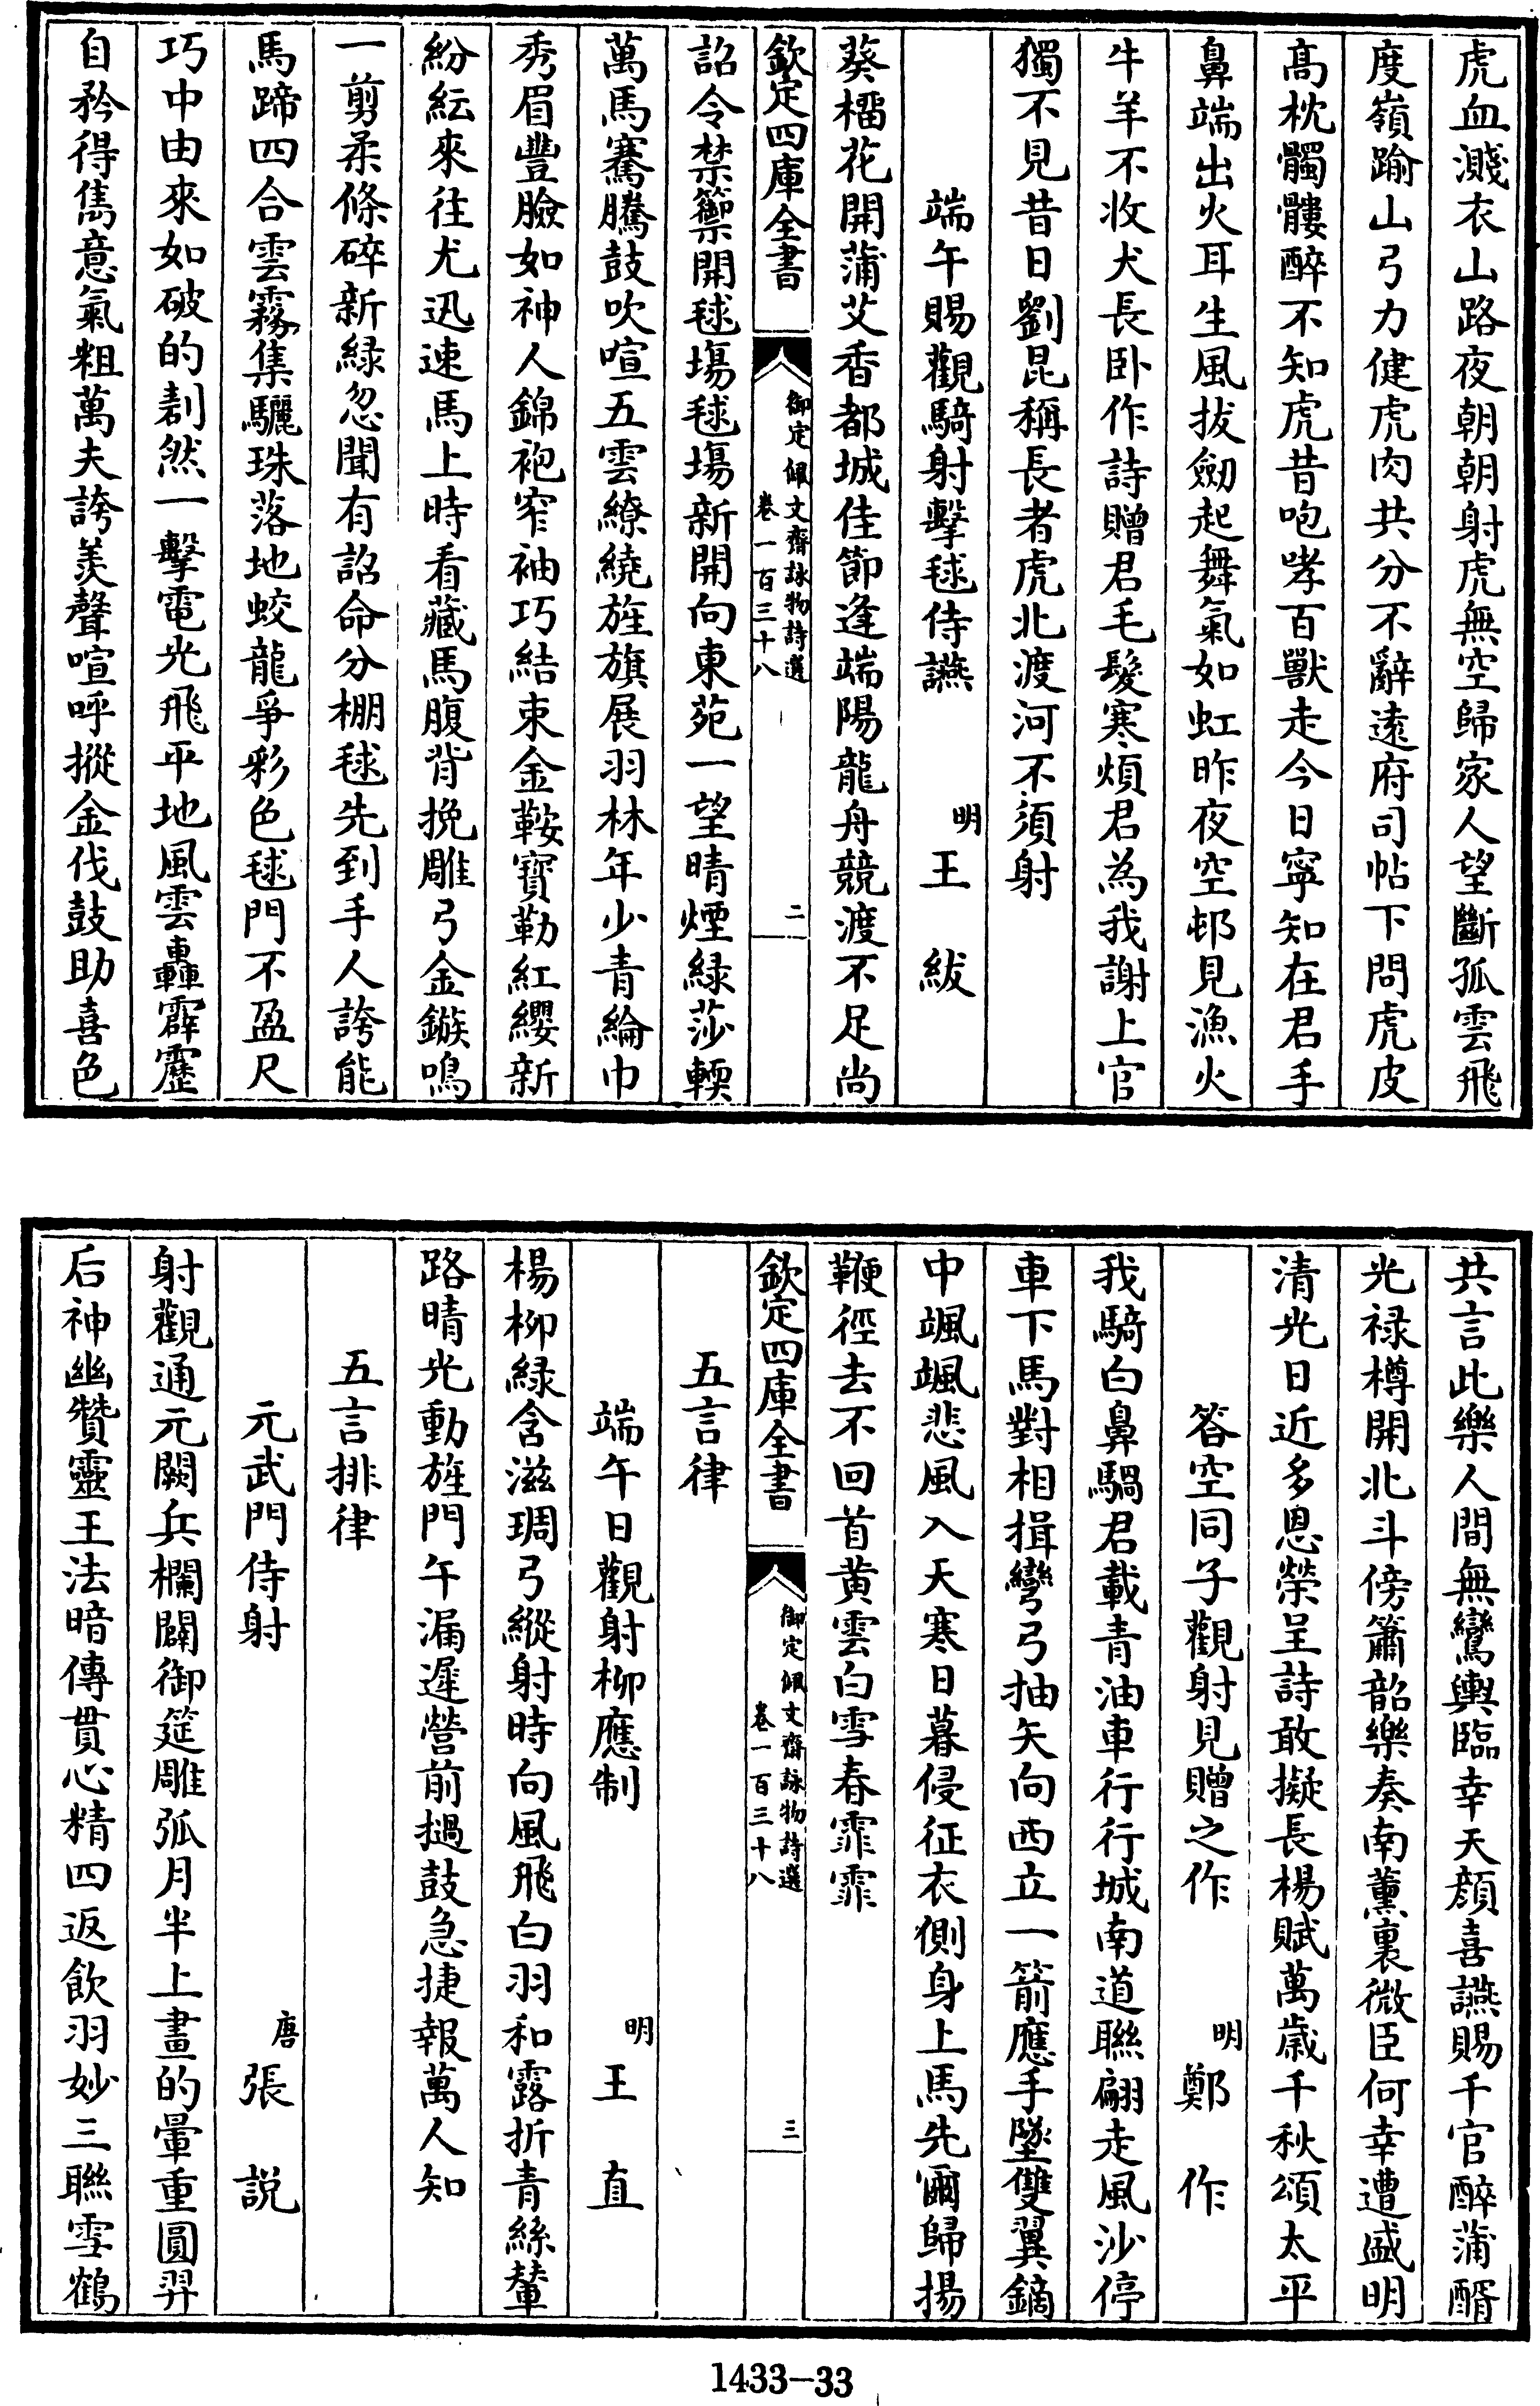 虎血濺衣山路夜朝朝射虎無空歸家人望斷孤雲飛
度嶺踰山弓力健虎肉共分不辭遠府司帖下問虎皮
髙枕髑髏醉不知虎昔咆哮百獸走今日寧知在君手
鼻端出火耳生風拔劒起舞氣如虹昨夜空邨見漁火
牛羊不收犬長卧作詩贈君毛髮寒煩君為我謝上官
獨不見昔日劉昆稱長者虎北渡河不須射
端午賜觀騎射擊毬侍讌 明 王 紱
葵榴花開蒲艾香都城佳節逢端陽龍舟競渡不足尚
欽定四庫全書 御定佩文齋詠物詩選 卷一百三十八 二
詔令禁籞開毬塲毬塲新開向東苑一望晴煙緑莎輭
萬馬騫騰鼓吹喧五雲繚繞旌旗展羽林年少青綸巾
秀眉豐臉如神人錦袍窄袖巧結束金鞍寳勒紅纓新
紛紜來往尤迅速馬上時看藏馬腹背挽雕弓金鏃鳴
一剪柔條碎新緑忽聞有詔命分棚毬先到手人誇能
馬蹄四合雲霧集驪珠落地蛟龍爭彩色毬門不盈尺
巧中由來如破的剨然一擊電光飛平地風雲轟霹靂
自矜得雋意氣粗萬夫誇羡聲喧呼摐金伐鼓助喜色
共言此樂人間無鸞輿臨幸天顔喜讌賜千官醉蒲醑
光禄樽開北斗傍簫韶樂奏南薰裏微臣何幸遭盛明
清光日近多恩榮呈詩敢擬長楊賦萬歲千秋頌太平
答空同子觀射見贈之作 明 鄭 作
我騎白鼻騧君載青油車行行城南道聯翩走風沙停
車下馬對相揖彎弓抽矢向西立一箭應手墜雙翼鏑
中颯颯悲風入天寒日暮侵征衣側身上馬先爾歸揚
鞭徑去不回首黄雲白雪春霏霏
欽定四庫全書 御定佩文齋詠物詩選 卷一百三十八 三
五言律
端午日觀射柳應制 明 王 直
楊柳緑含滋琱弓縱射時向風飛白羽和露折青絲輦
路晴光動旌門午漏遲營前撾鼓急捷報萬人知
五言排律
元武門侍射 唐 張 説
射觀通元闕兵欄闢御筵雕弧月半上畫的暈重圓羿
后神幽贊靈王法暗傳貫心精四返飲羽妙三聯雪鶴
1433-33